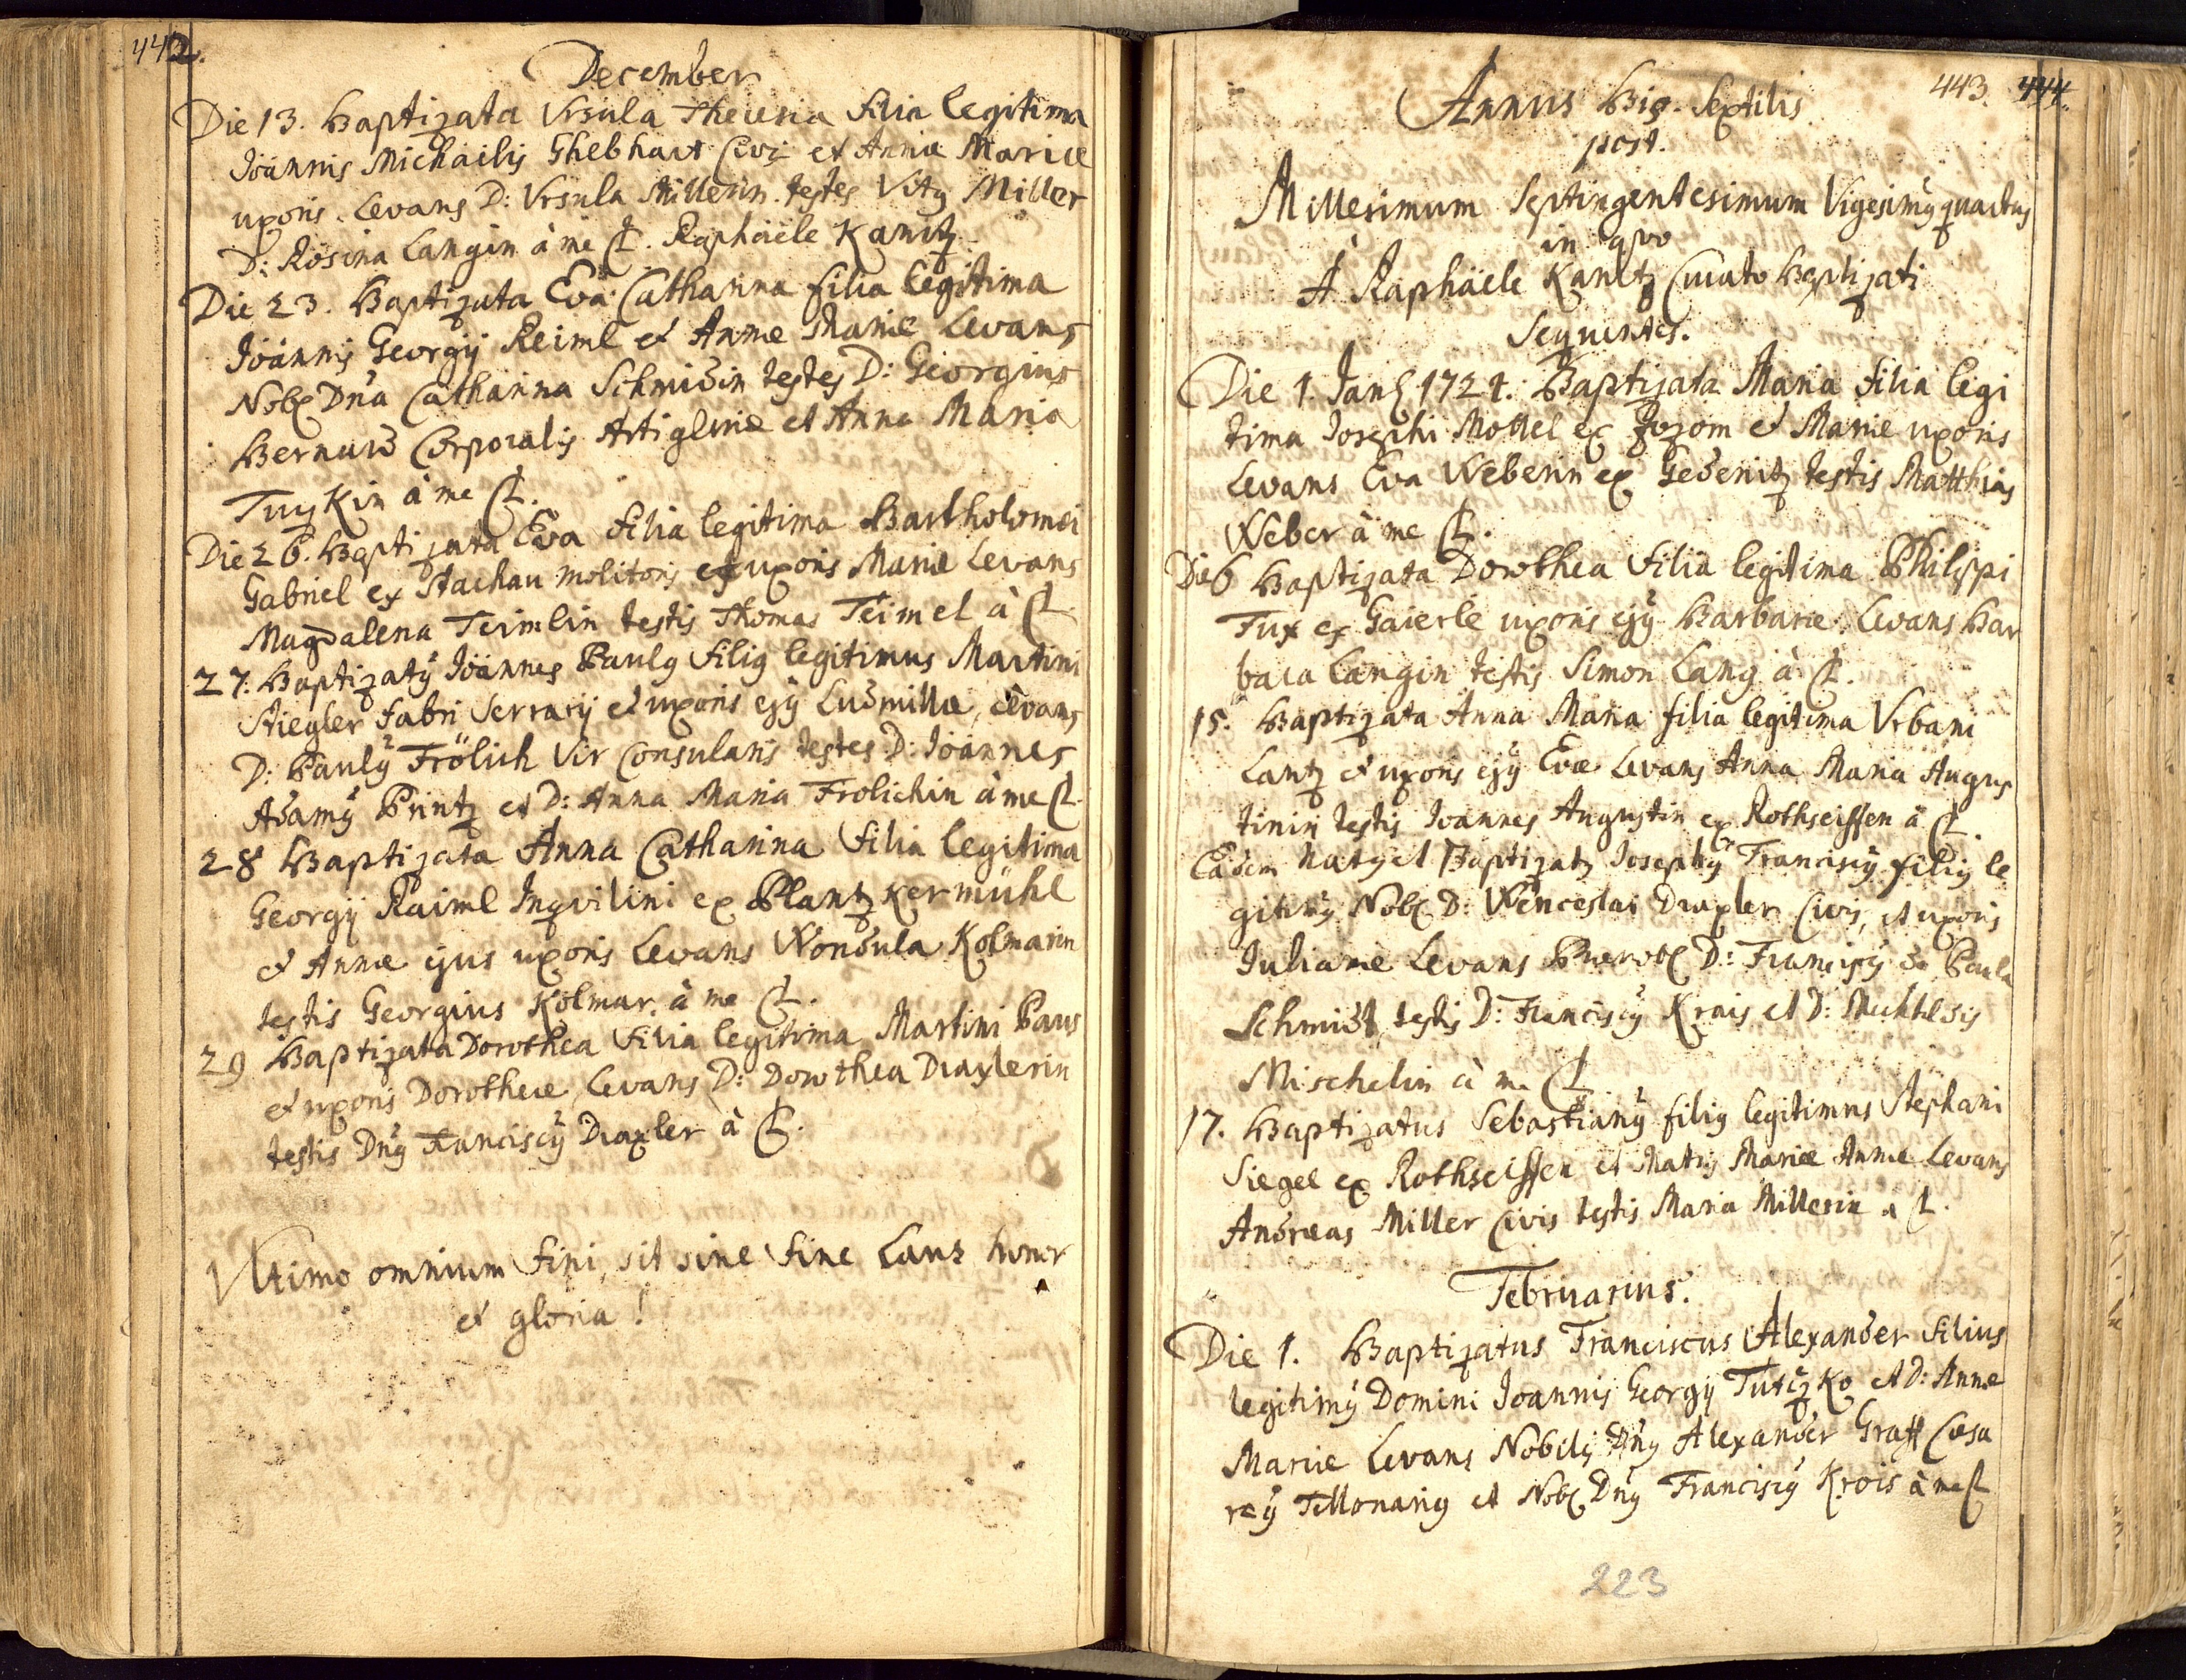 442.
December
Die 13. Baptizata Vrsula Theresia filia legitima
Joannis Michaelis Ghebhart Civis et Annæ Mariæ
uxoris. Levans D: Vrsula Millerin. testes Vitg Miller
D: Rosina Langin à me C. Raphaële Kanitz
Die 23. Baptizata Eva Catharina filia legitima
Joannis Georgij Reiml et Annæ Mariæ Levans
Nob. Dna Catharina Schmidin testes D: Georgius
Bernard Corporalis Artigleriæ et Anna Maria
Tuzkin à me C.
Die 26. Baptizata Eva filia legitima Bartholomæi
Gabriel ex Stachau molitoris et uxoris Mariæ Levans
Magdalena Teimlin testis Thomas Teimel à C.
27. Baptizatg Joannes Paulg filig legitimus Martini
Stiegler fabri Serrarij et uxoris ejg Ludmillæ, Levans
D: Paulg Frölich Vir Consularis testes D: Joannes
Adamg Printz et D: Anna Maria Frolichin à me C.
28 Baptizata Anna Catharina filia legitima
Georgij Raiml Inqvilini ex Plantzkermühl
et Annæ ejus uxoris Levans Wondula Kolmarin
testis Georgius Kolmar. à me C.
29 Baptizata Dorothea filia legitima Martini Paus
et uxoris Dorotheæ, Levans D: Dorothea Draxlerin
testis Dng Franciscg Draxler à C.
Vltimo omnium fini, sit sine fine Laus honor
et gloria!
443. 444.
Annus Bis. Sextilis
post.
Millesimum Septingentesimum Vigesimg quartus
in qvo
A Raphaële Kanitz Curato Baptizati
Sequentes.
Die 1. Jan. 1724. Baptizata Maria filia legi
tima Josephi Mottel ex Jozom et Mariæ uxoris
Levans Eva Weberin ex Gedenitz testis Matthias
Weber à me C.
Die 6 Baptizata Dorothea filia legitima Philippi
Fux ex Gaierle uxoris ejg Barbaræ. Levans Bar
bara Langin testis Simon Lang à C.
15. Baptizata Anna Maria filia legitima Vrbani
Lantz et uxoris ejg Evæ Levans Anna Maria Augus
tinin testis Joannes Augustin ex Rothseiffen à C.
Eadem natg et Baptizatg Josephg Franciscg filig le
gitimg Nob. D: Wenceslai Draxler Civis, et uxoris
Julianæ Levans Prænob. D: Franciscg de Paula
Schmidt, testis D: Franciscg Krais et D: Mechtldis
Mischelin à me C.
17. Baptizatus Sebastiang filig legitimus Stephani
Siegel ex Rothseiffen et Matris Mariæ Annæ Levans
Andreas Miller Civis testis Maria Millerin à C.
Februarius.
Die 1. Baptizatus Franciscus Alexander filius
legitimg Domini Joannis Georgij Tutzko et D: Annæ
Mariæ Levans Nobilis Dng Alexander Graff Cæsa
reg Tellonarig et Nob. Dng Franciscg Krois à me C
223